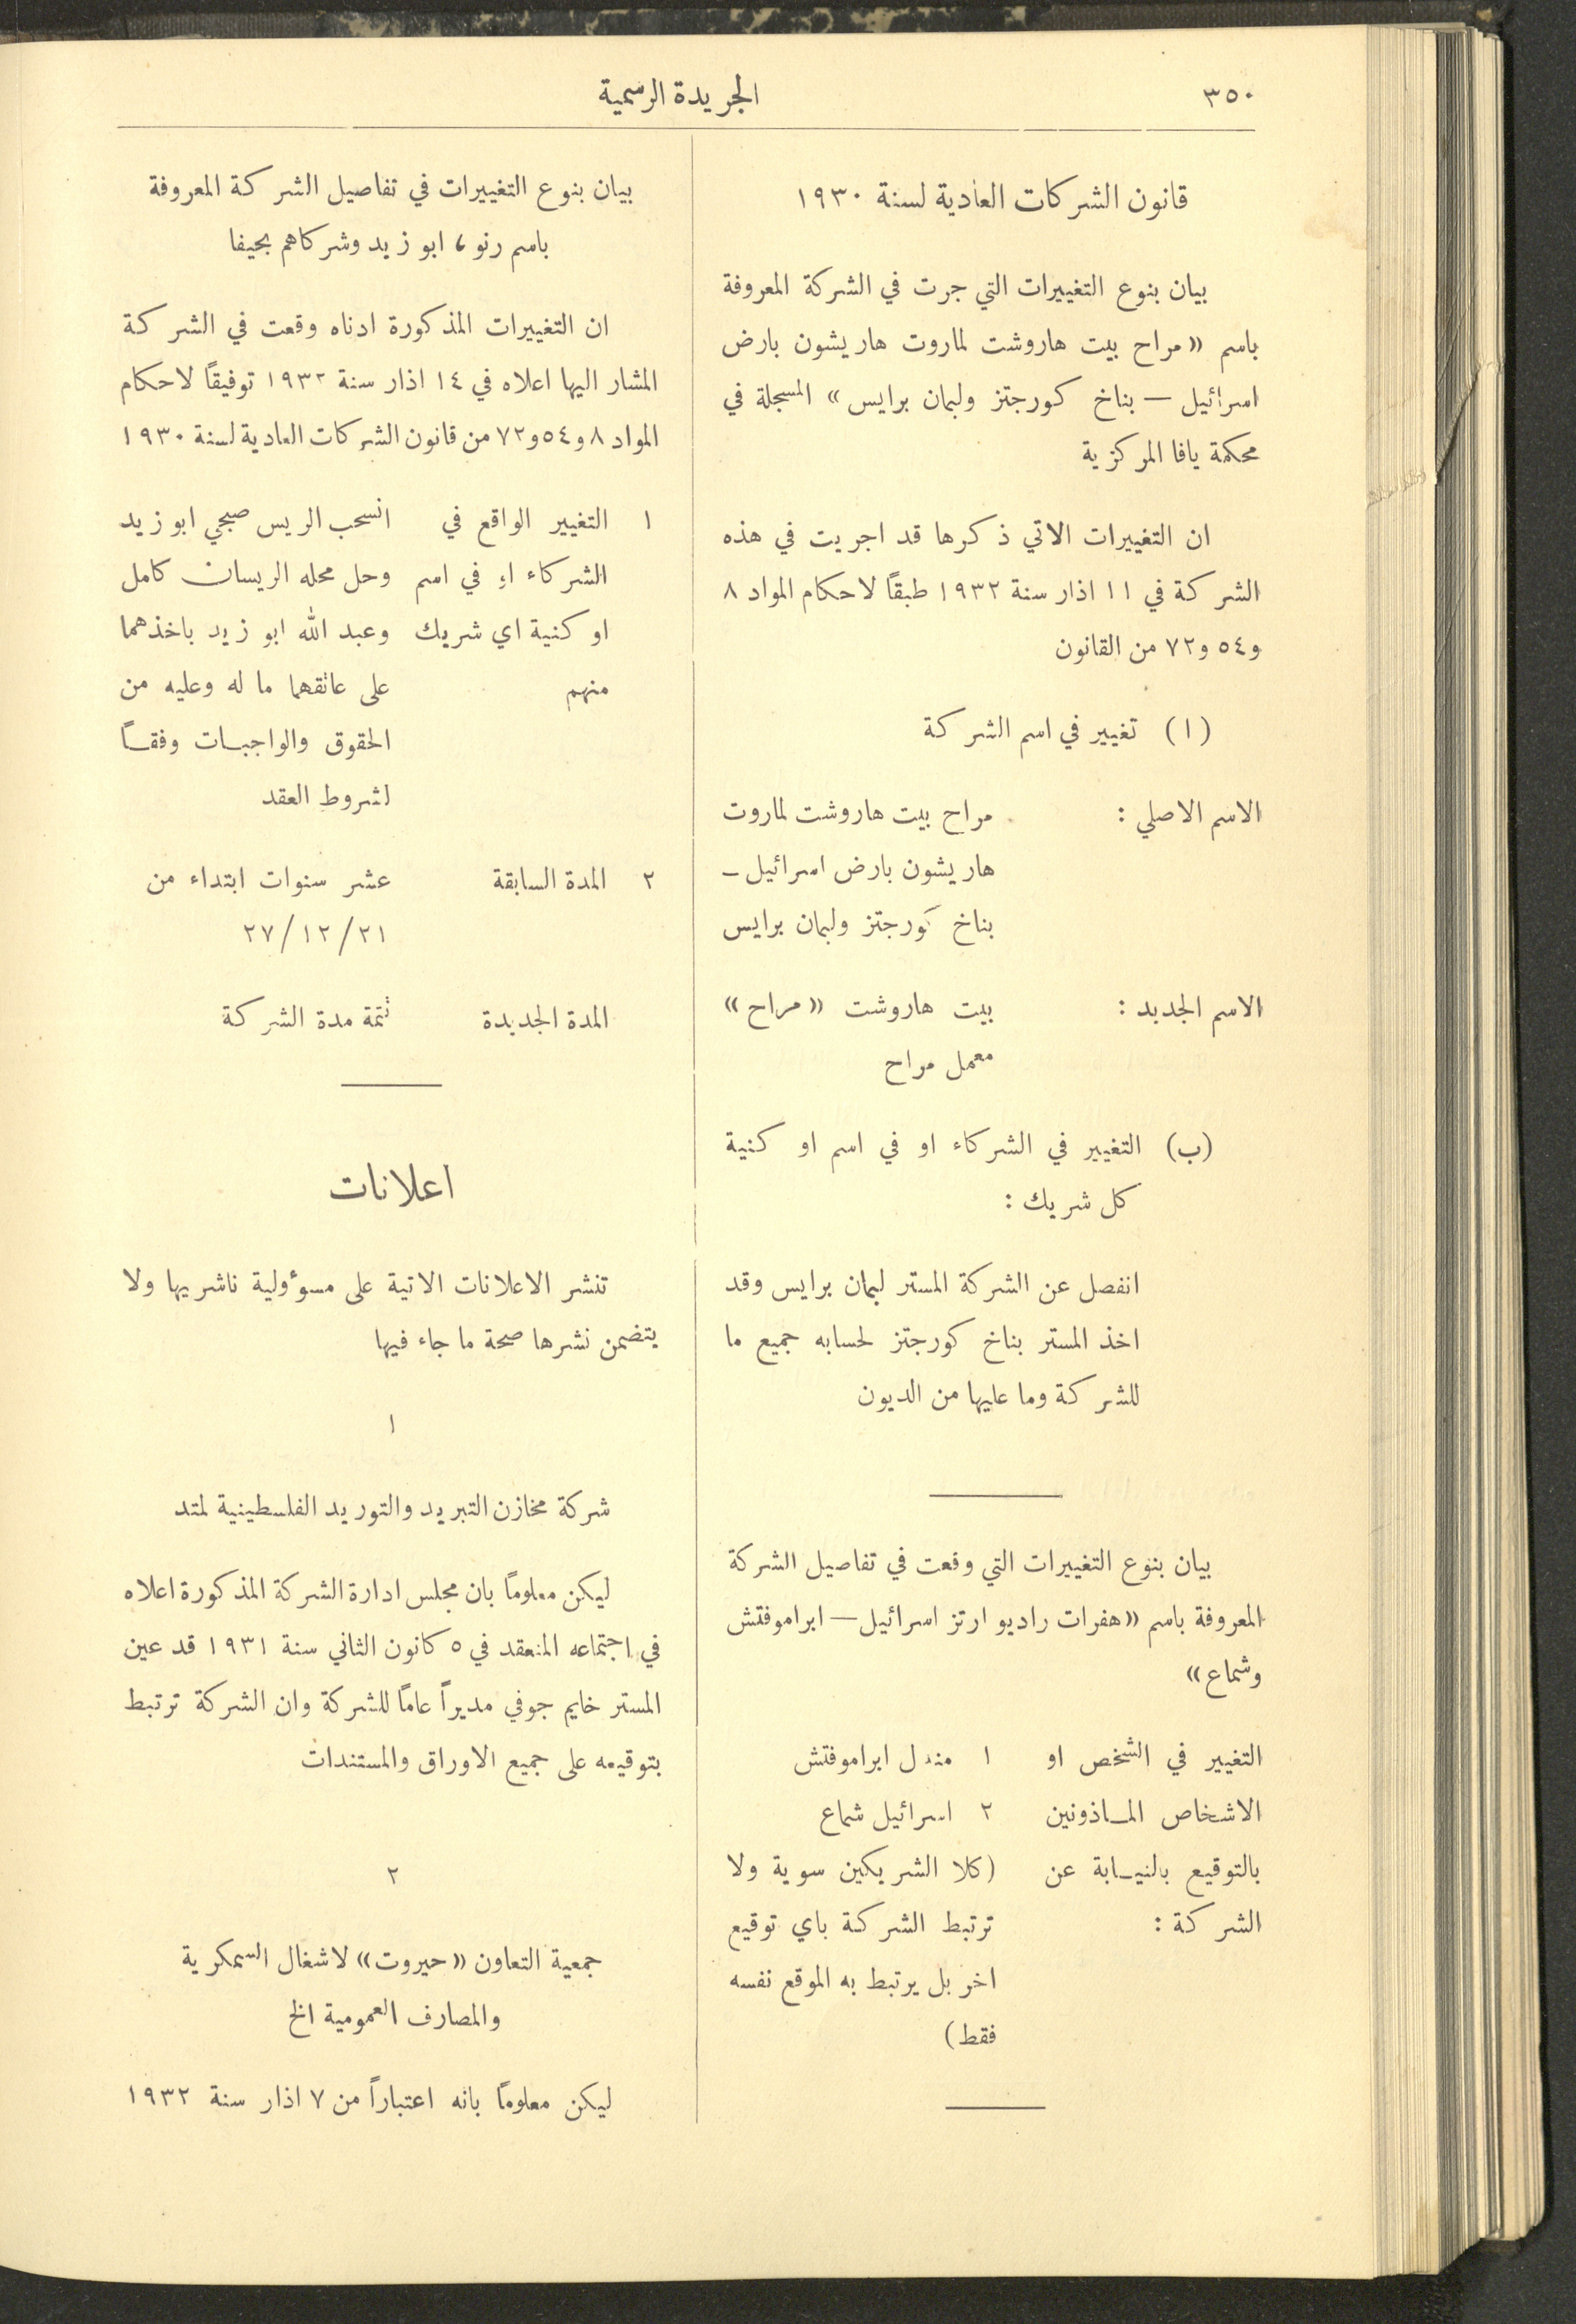 ٣٥٠
الجريدة الرسمية
قانون الشركات العادية لسنة ١٩٣٠
بيان بنوع التغييرات التي جرت في الشركة المعروفة
باسم «مراح بيت هاروشت لماروت هاريشون بارض
اسرائيل — بناخ كورجتز ولبمان برايس» المسجلة في
محكمة يافا المركزية
ان التغييرات الاتي ذكرها قد اجريت في هذه
الشركة في ١١ اذار سنة ١٩٣٢ طبقاً لاحكام المواد ٨
و٥٤ و٧٢ من القانون
(ا) تغيير في اسم الشركة
الاسم الاصلي : مراح بيت هاروشت لماروت
هاريشون بارض اسرائيل –
بناخ كورجتز ولبمان برايس
الاسم الجديد : بيت هاروشت «مراح»
معمل مراح
(ب) التغيير في الشركاء او في اسم او كنية
كل شريك :
انفصل عن الشركة المستر لبمان برايس وقد
اخذ المستر بناخ كورجتز لحسابه جميع ما
للشركة وما عليها من الديون
بيان بنوع التغييرات التي وقعت في تفاصيل الشركة
المعروفة باسم «هفرات راديو ارتز اسرائيل — ابراموفتش
وشماع»
التغيير في الشخص او ١ مندل ابراموفتش
الاشخاص المـاذونين ٢ اسرائيل شماع
بالتوقيع بالنيـابة عن (كلا الشريكين سوية ولا
الشركة : ترتبط الشركة باي توقيع
اخر بل يرتبط به الموقع نفسه
فقط)
بيان بنوع التغييرات في تفاصيل الشركة المعروفة
باسم رنو، ابو زيد وشركاهم بحيفا
ان التغييرات المذكورة ادناه وقعت في الشركة
المشار اليها اعلاه في ١٤ اذار سنة ١٩٣٢ توفيقاً لاحكام
المواد ٨ و٥٤ و٧٢ من قانون الشركات العادية لسنة ١٩٣٠
١ التغيير الواقع في انسحب الريس صبحي ابو زيد
الشركاء او في اسم وحل محله الريسان كامل
او كنية اي شريك وعبد الله ابو زيد باخذهما
منهم على عاتقهما ما له وعليه من
الحقوق والواجبـات وفقـاً
لشروط العقد
٢ المدة السابقة عشر سنوات ابتداء من
٢٧/١٢/٢١
المدة الجديدة تتمة مدة الشركة
اعلانات
تنشر الاعلانات الاتية على مسوؤلية ناشريها ولا
يتضمن نشرها صحة ما جاء فيها
١
شركة مخازن التبريد والتوريد الفلسطينية لمتد
ليكن معلوماً بان مجلس ادارة الشركة المذكورة اعلاه
في اجتماعه المنعقد في ٥ كانون الثاني سنة ١٩٣١ قد عين
المستر خايم جوفي مديراً عاماً للشركة وان الشركة ترتبط
بتوقيعه على جميع الاوراق والمستندات
٢
جمعية التعاون «حيروت» لاشغال السمكرية
والمصارف العمومية الخ
ليكن معلوماً بانه اعتباراً من ٧ اذار سنة ١٩٣٢